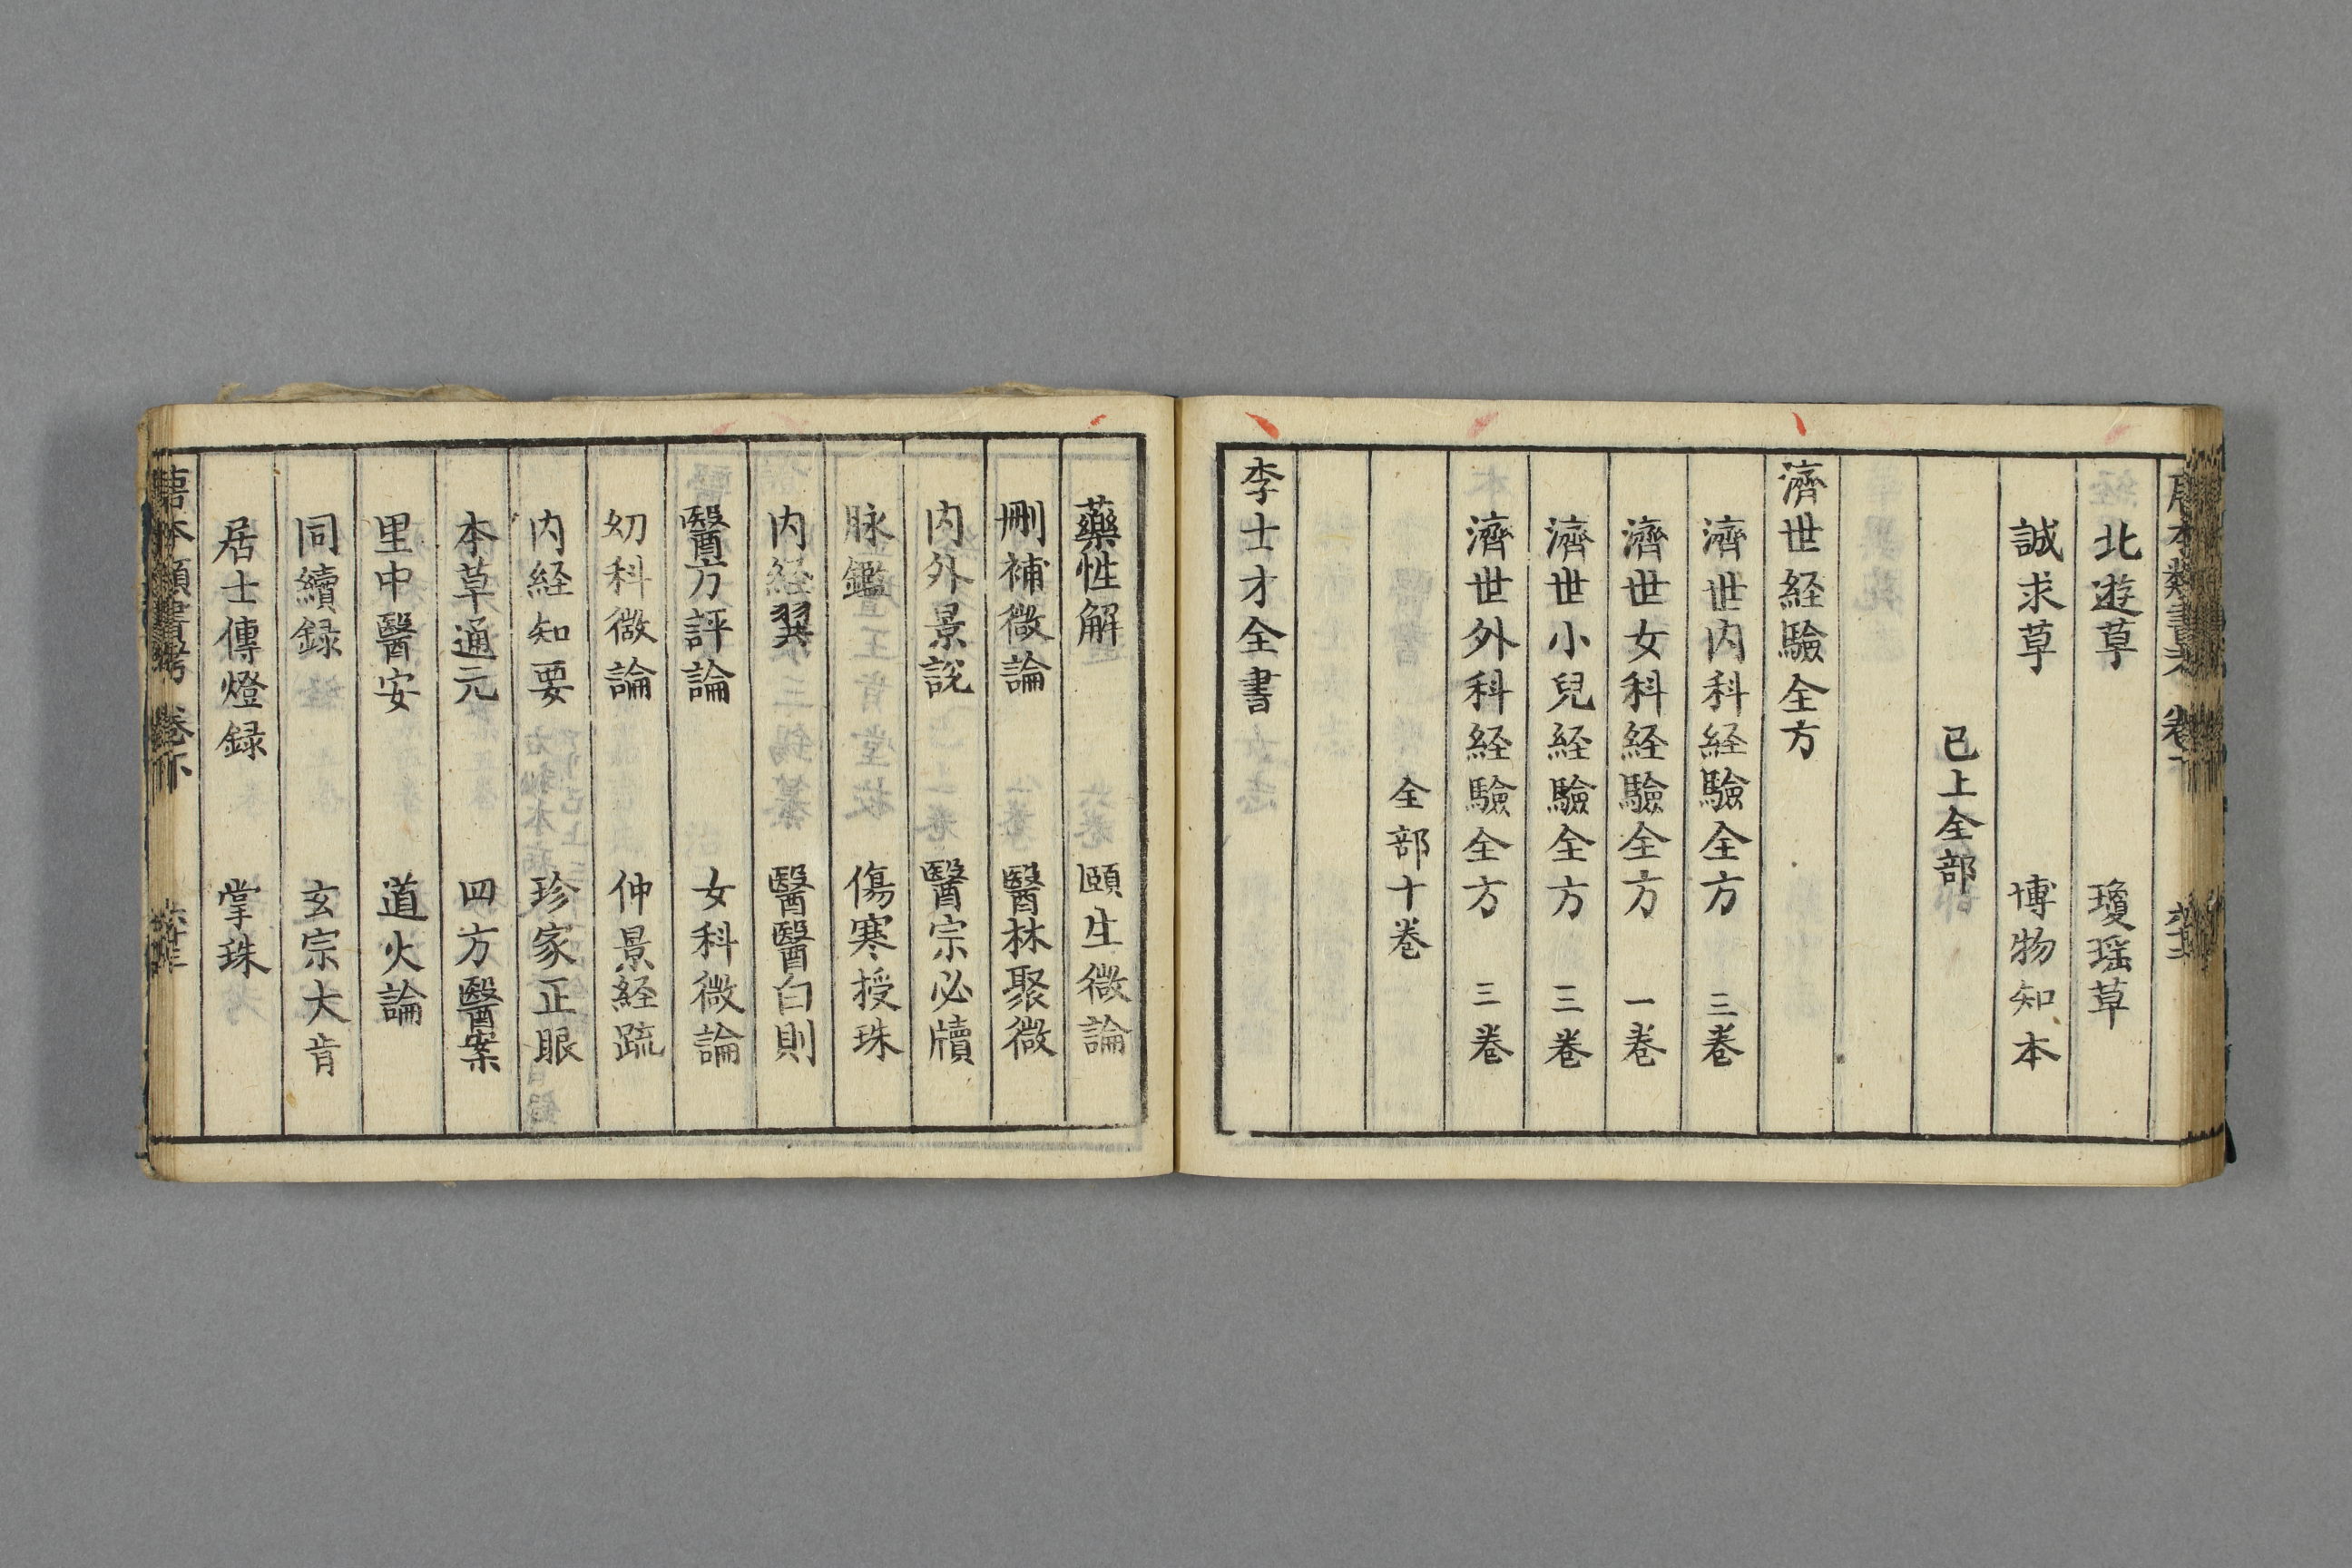 北遊草 瓊瑶草
誠求草 博物知本
已上全部
濟世経驗全方
濟世内科経驗全方 三卷
濟世女科経驗全方 一卷
濟世小兒経驗全方 三卷
濟世外科経驗全方 三卷
全部十卷
李士才全書
藥性解 頤生微論
刪補微論 醫林聚微
内外景説 醫宗必牘
脉鑑 傷寒授珠
内経翼 醫醫白則
醫方評論 女科微論
㓜科微論 仲景経䟽
内経知要 珍家正眼
本草通元 四方醫案
里中醫安 道火論
同續録 玄宗大肯
居士傳燈録 掌珠